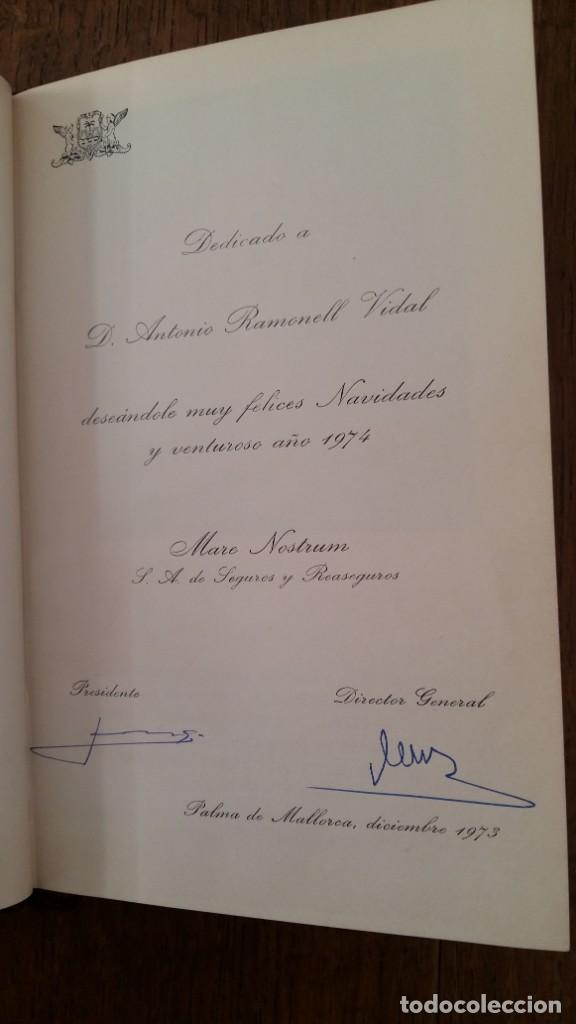 Dedicado a
D. Antonio Ramonell Vidal
deseándole muy felices Navidades
y venturoso año 1974
Mare Nostrum
S. A. de Seguros y Reaseguros
Presidente
Director General
Palma de Mallorca, diciembre 1973
todocoleccion